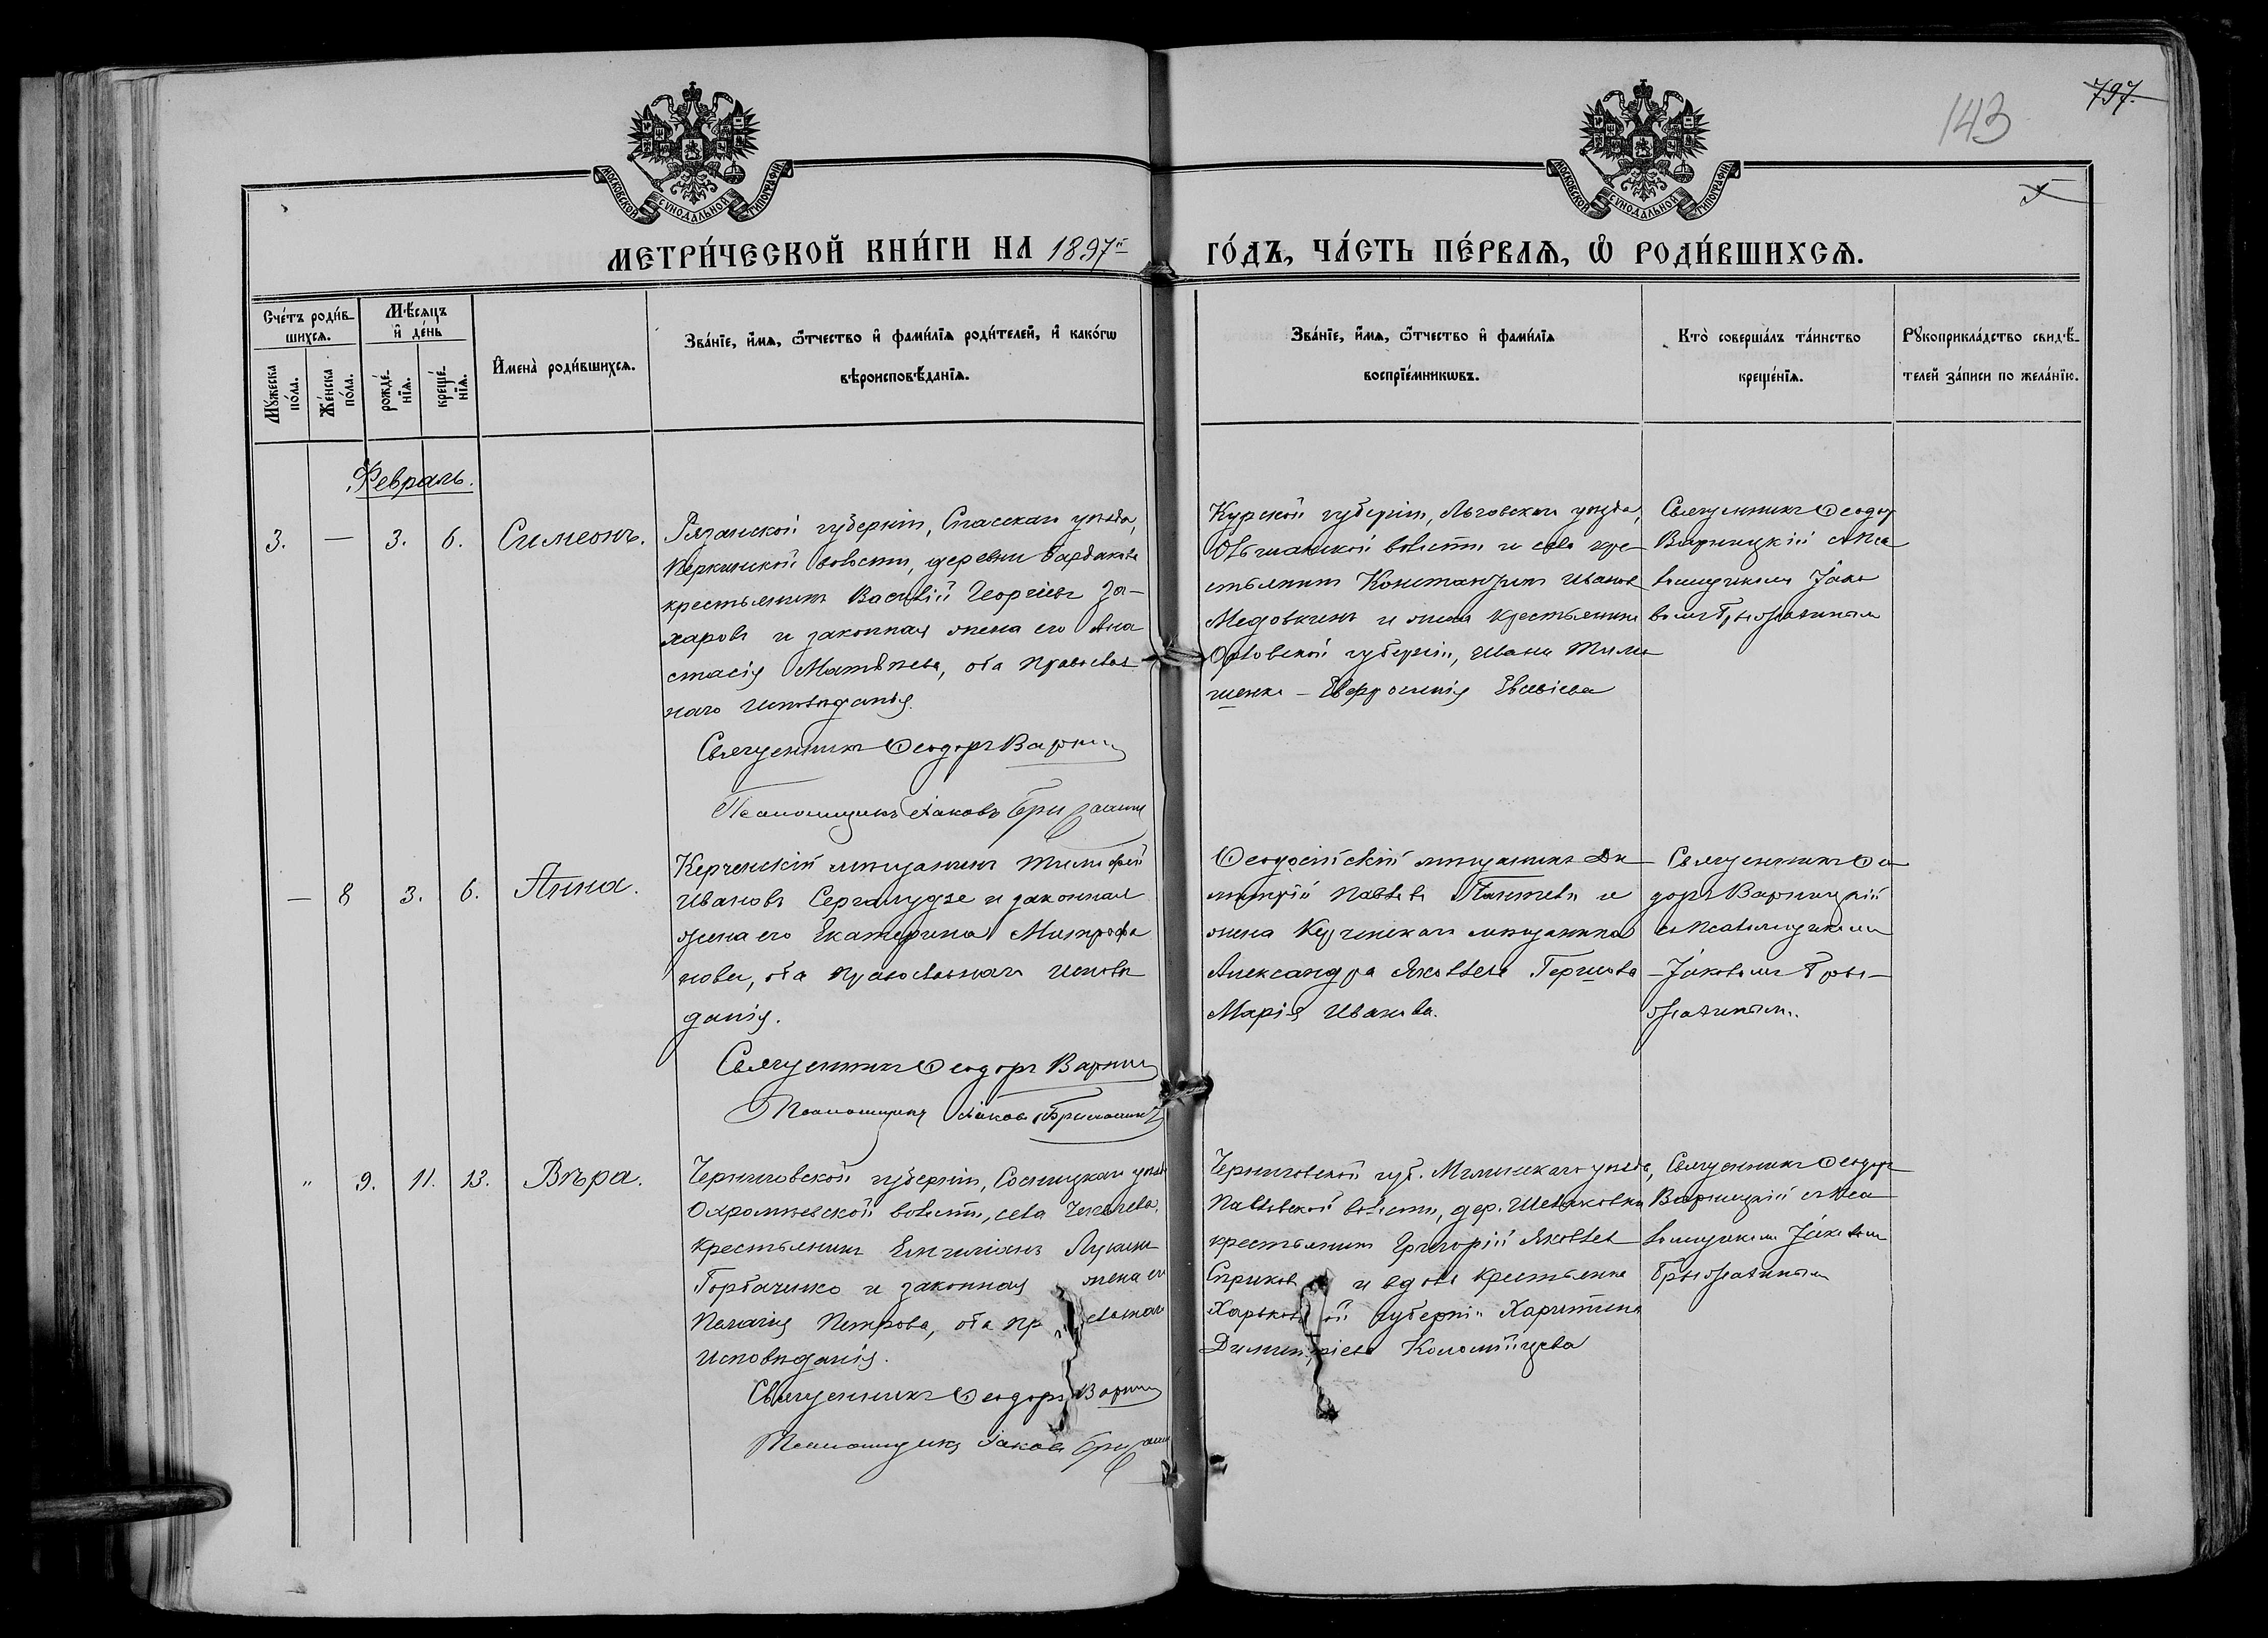 143
797.
МОСКОВСКОЙ СѴНОДАЛЬНОЙ ТИПОГРАФІИ
МОСКОВСКОЙ СѴНОДАЛЬНОЙ ТИПОГРАФІИ
МЕТРИ́ЧЕСКОЙ КНИ́ГИ НА 1897й
ГО́ДЪ, ЧА́СТЬ ПЕ́РВАѦ, Ѽ РОДИ́ВШИХСѦ.
Сче́тъ роди́в-
шихсѧ.
Му́жеска
по́ла.
Же́нска
по́ла.
Мѣ́сяцъ
и҆ де́нь
рожде́-
нїѧ.
креще́-
нїѧ.
И҆мена̀ роди́вшихсѧ.
Зва́нїе, и҆́мѧ, ѻ҆́тчество и҆ фами́лїѧ роди́телей, и҆ како́гѡ
вѣроисповѣ́данїѧ.
Зва́нїе, и҆́мѧ, ѻ҆́тчество и҆ фами́лїѧ
воспрїе́мникѡвъ.
Кто̀ соверша́лъ та́инство
креще́нїѧ.
Рꙋкоприкла́дство свидѣ́-
телей за́писи по жела́нїю.
Февраль.
3. — 3. 6. Симеонъ.
Рязанской губерніи, Спасскаго уѣзда,
Перкинской волости, деревни Бардакова
крестьянинъ Василій Георгіевъ За-
харовъ и законная жена его Ана
стасія Матвѣева, оба православ
наго исповѣданія.
Священникъ Ѳеодоръ Варниц
Псаломщикъ Іаковъ
Курской губерніи, Льговскаго уѣзда,
волости и села кре-
стьянинъ Константинъ Иванов
Медовкинъ и жена крестьянина
Орловской губерніи, Ивана Тимо
шенко - Евфросинія Евсевіева
Священникъ Ѳеодор
Варницкій съ Пса
ломщикомъ Іако
вомъ
— 8 3. 6. Анна.
Керченскій мѣщанинъ Тимофей
Ивановъ и законная
жена его Екатерина Митрофа
нова, оба православнаго исповѣ
данія.
Священникъ Ѳеодоръ Варниц
Псаломщикъ Іаковъ
Ѳеодосійскій мѣщанинъ Ди
митрій Павловъ и
жена Керченскаго мѣщанина
Александра Яковлева
Марія Иванова.
Священникъ Ѳео
доръ Варницкій
съ Псаломщикомъ
Іаковомъ
" 9. 11. 13. Вѣра.
Черниговской губерніи, Сосницкаго уѣзд
Охрамѣевской волости, села
крестьянинъ Емиліанъ Лукинъ
Горбаченко и законная жена его
Пелагія Петрова, оба пр славнаго
исповѣданія.
Священникъ Ѳеодоръ Варниц
Псаломщикъ Іаковъ
Черниговской губ. Мглинскаго уѣзда,
Павловской волости, дер.
крестьянинъ Григорій Яковлев
и вдова крестьянина
Харьков ой губерніи Харитина
Димитріева Коломійцева
Священникъ Ѳеодоръ
Варницкій съ Пса
ломщикомъ Іаковом